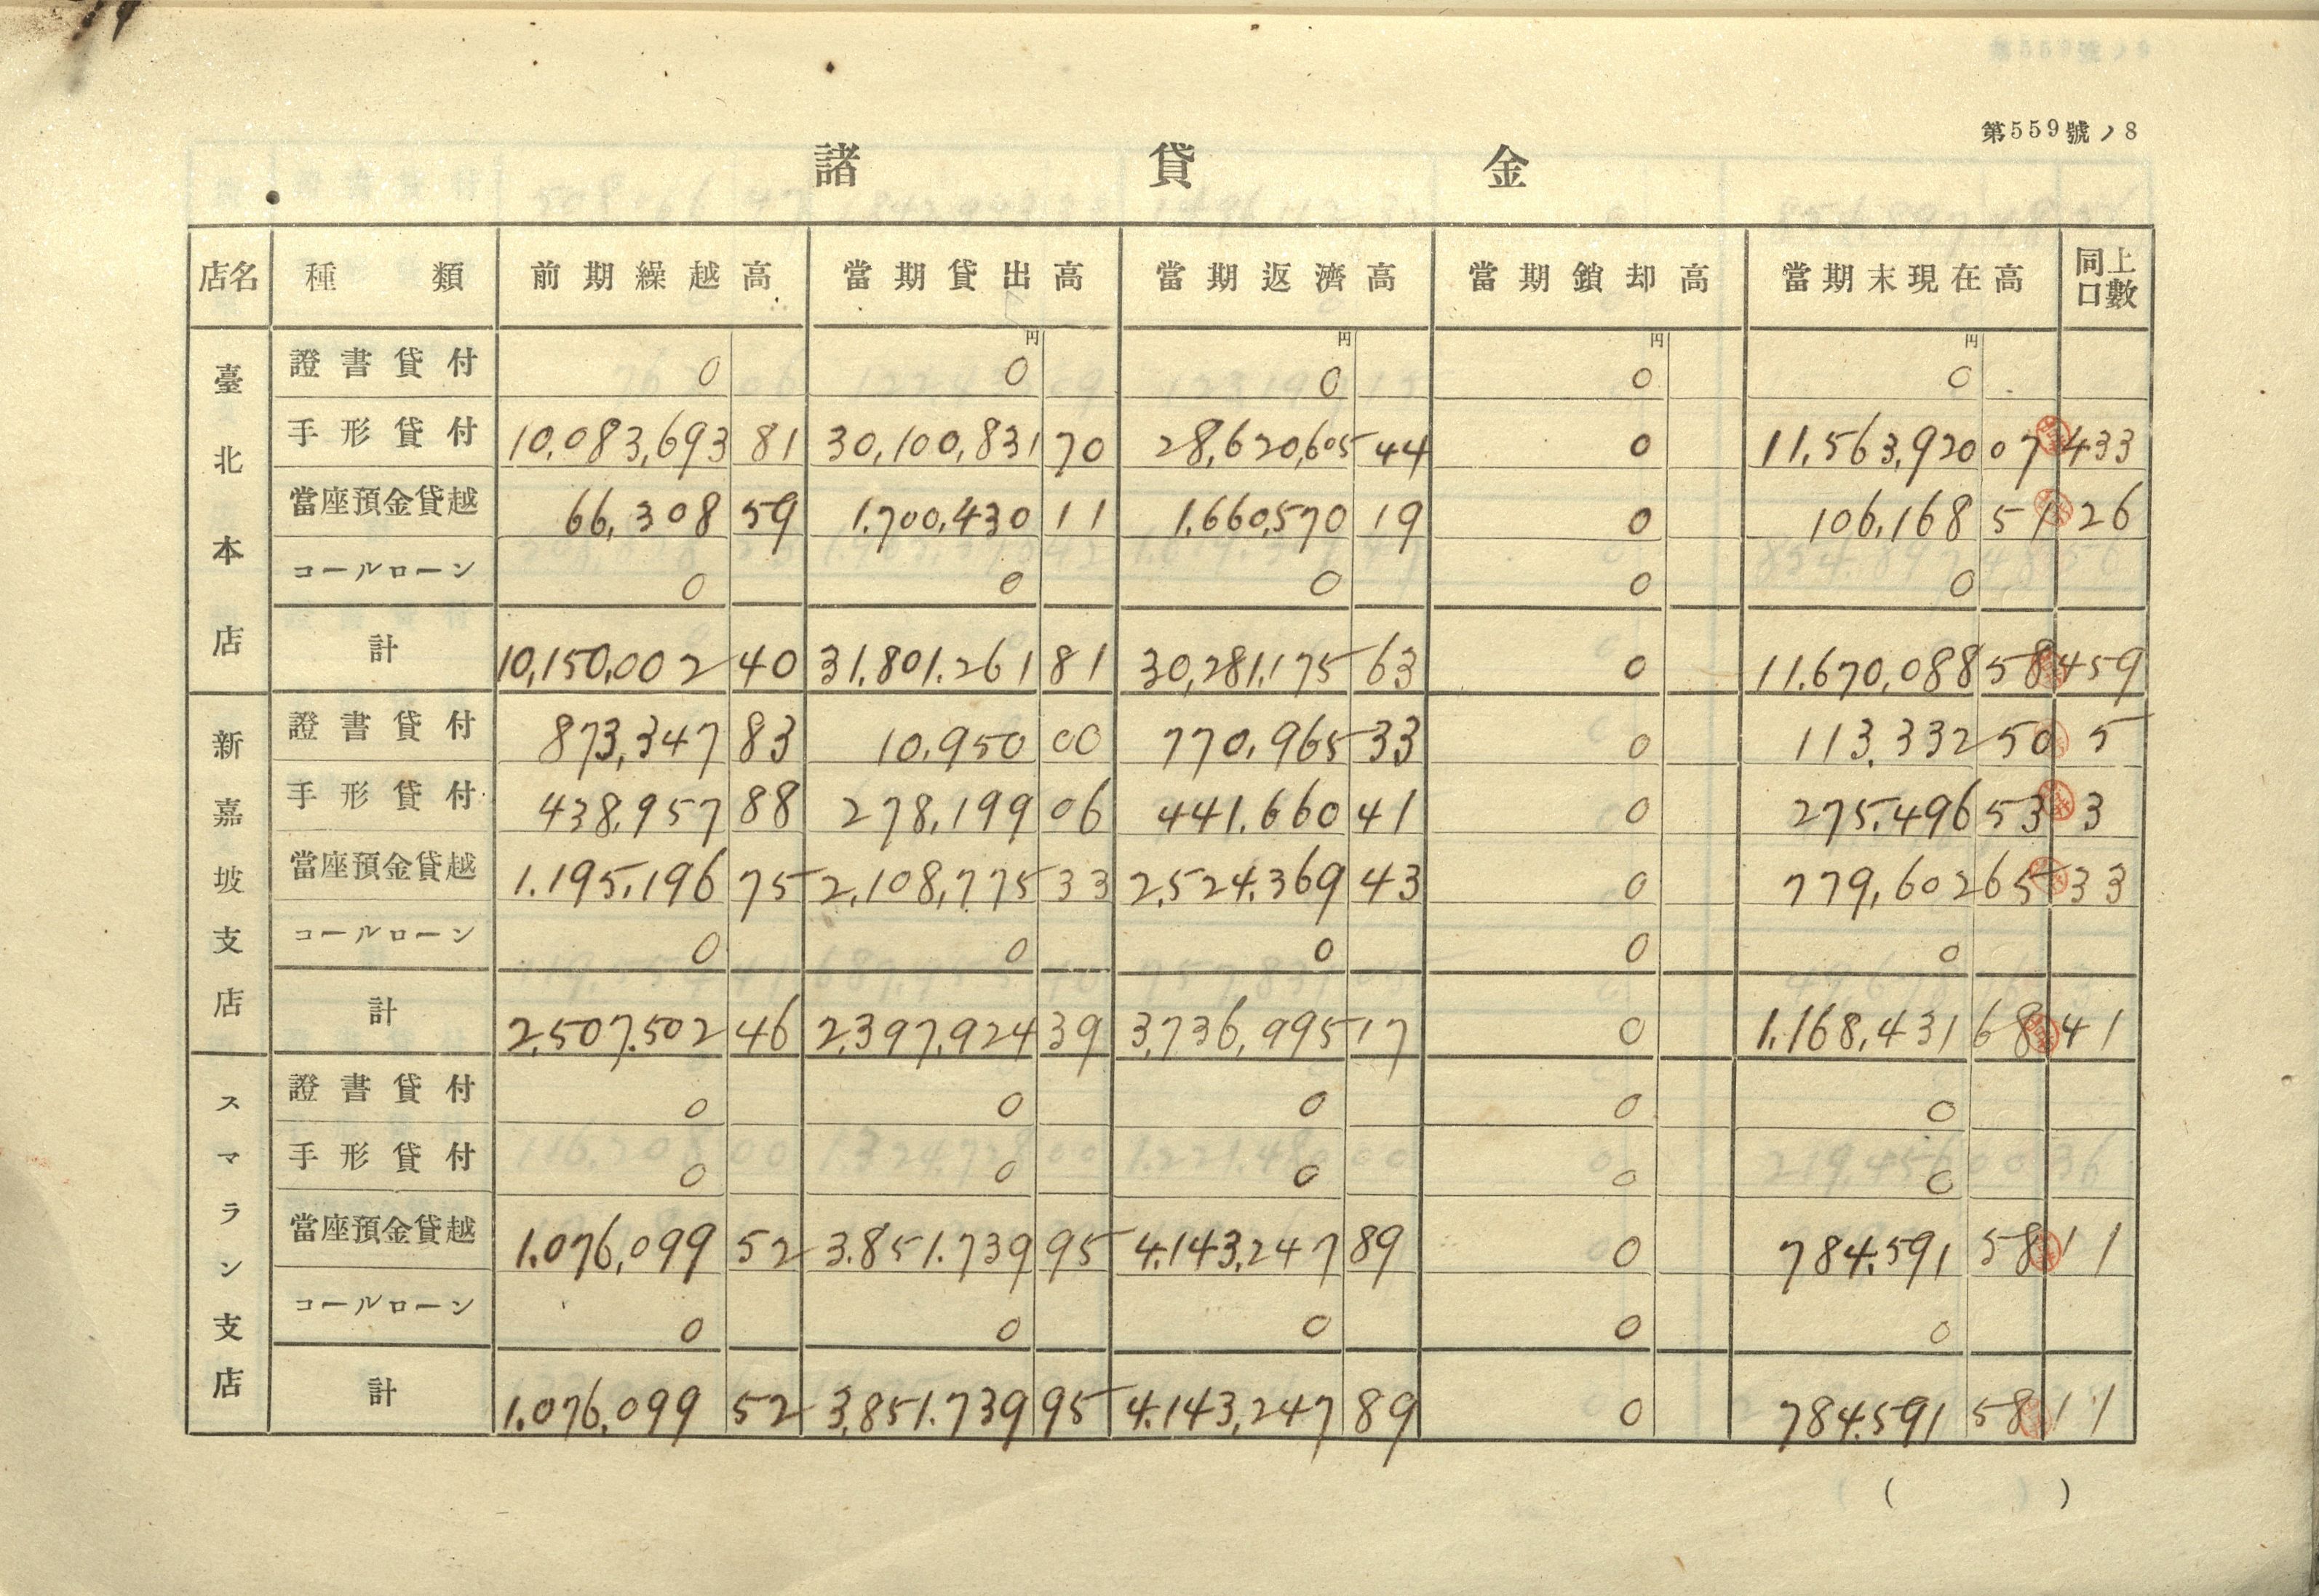 第559號ノ8
諸貸金
店名 種類 前期繰越高 當期貸出高 當期返濟高 當期鎖却高 當期末現在高 同上口數
臺北本店
円 円 円 円
證書貸付 0 0 0 0 0
手形貸付 10,083,693 81 30,100,831 70 28,620,605 44 0 11,563,920 07 433
當座預金貸越 66,308 59 1,700,430 11 1,660,570 19 0 106,168 51 26
コールローン 0 0 0 0 0
計 10,150,002 40 31,801,261 81 30,281,175 63 0 11,670,088 58 459
新嘉坡支店
證書貸付 873,347 83 10,950 00 770,965 33 0 113,332 50 5
手形貸付 438,957 88 278,199 06 441,660 41 0 275,496 53 3
當座預金貸越 1,195,196 75 2,108,775 33 2,524,369 43 0 779,602 65 33
コールローン 0 0 0 0 0
計 2,507,502 46 2,397,924 39 3,736,995 17 0 1,168,431 68 41
スマラン支店
證書貸付 0 0 0 0 0
手形貸付 0 0 0 0 0
當座預金貸越 1,076,099 52 3,851,739 95 4,143,247 89 0 784,591 58 11
コールローン 0 0 0 0 0
計 1,076,099 52 3,851,739 95 4,143,247 89 0 784,591 58 11
( )